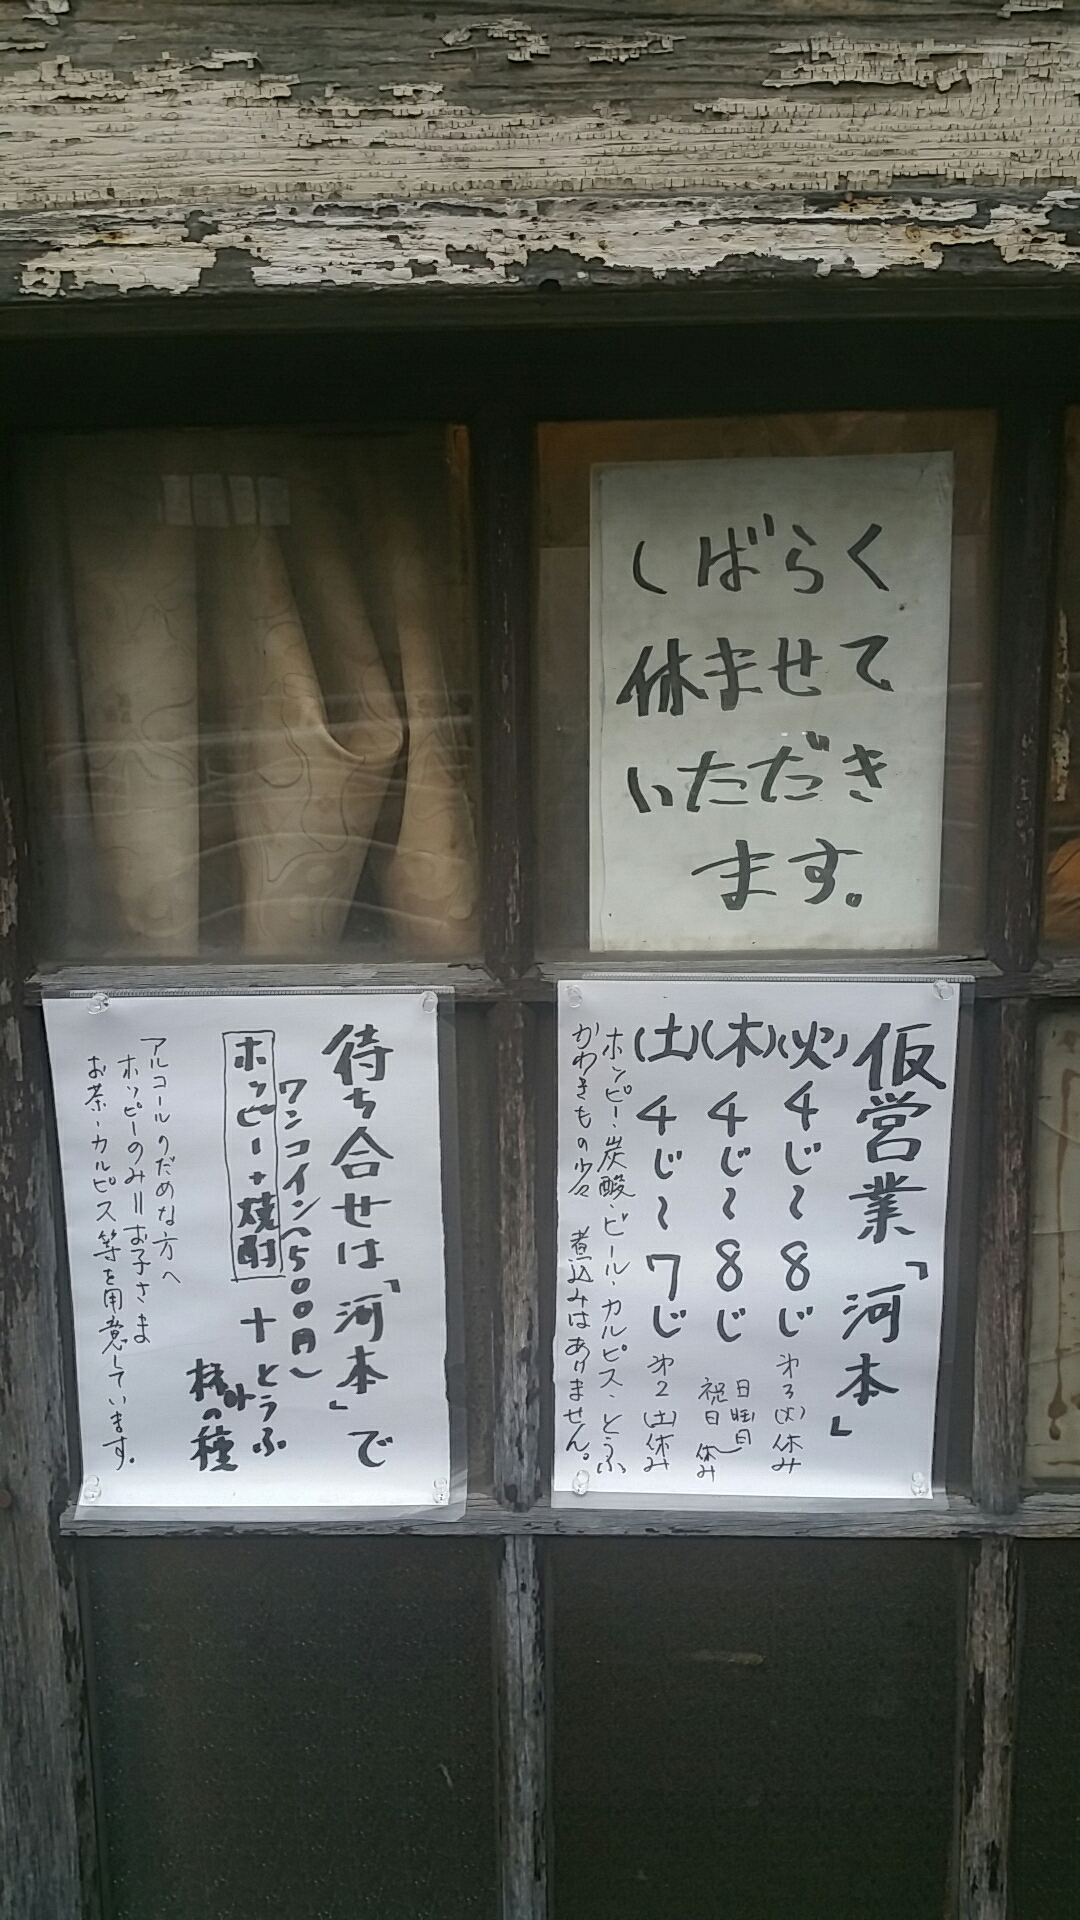 しばらく
休ませて
いただき
ます。
仮営業「河本」
(火)4じ〜8じ 第3(火)休み
(木)4じ〜8じ 日曜日
祝日 休み
(土)4じ〜7じ 第2(土)休み
ホッピー・炭酸・ビール・カルピス・とうふ
かわきもの少々 煮込みはありません。
待ち合せは「河本」で
ワンコイン(500円)
ホッピー+焼酎 + とうふ
柿の種
アルコールのだめな方へ
ホッピーのみ=お子さま
お茶・カルピス等を用意しています。